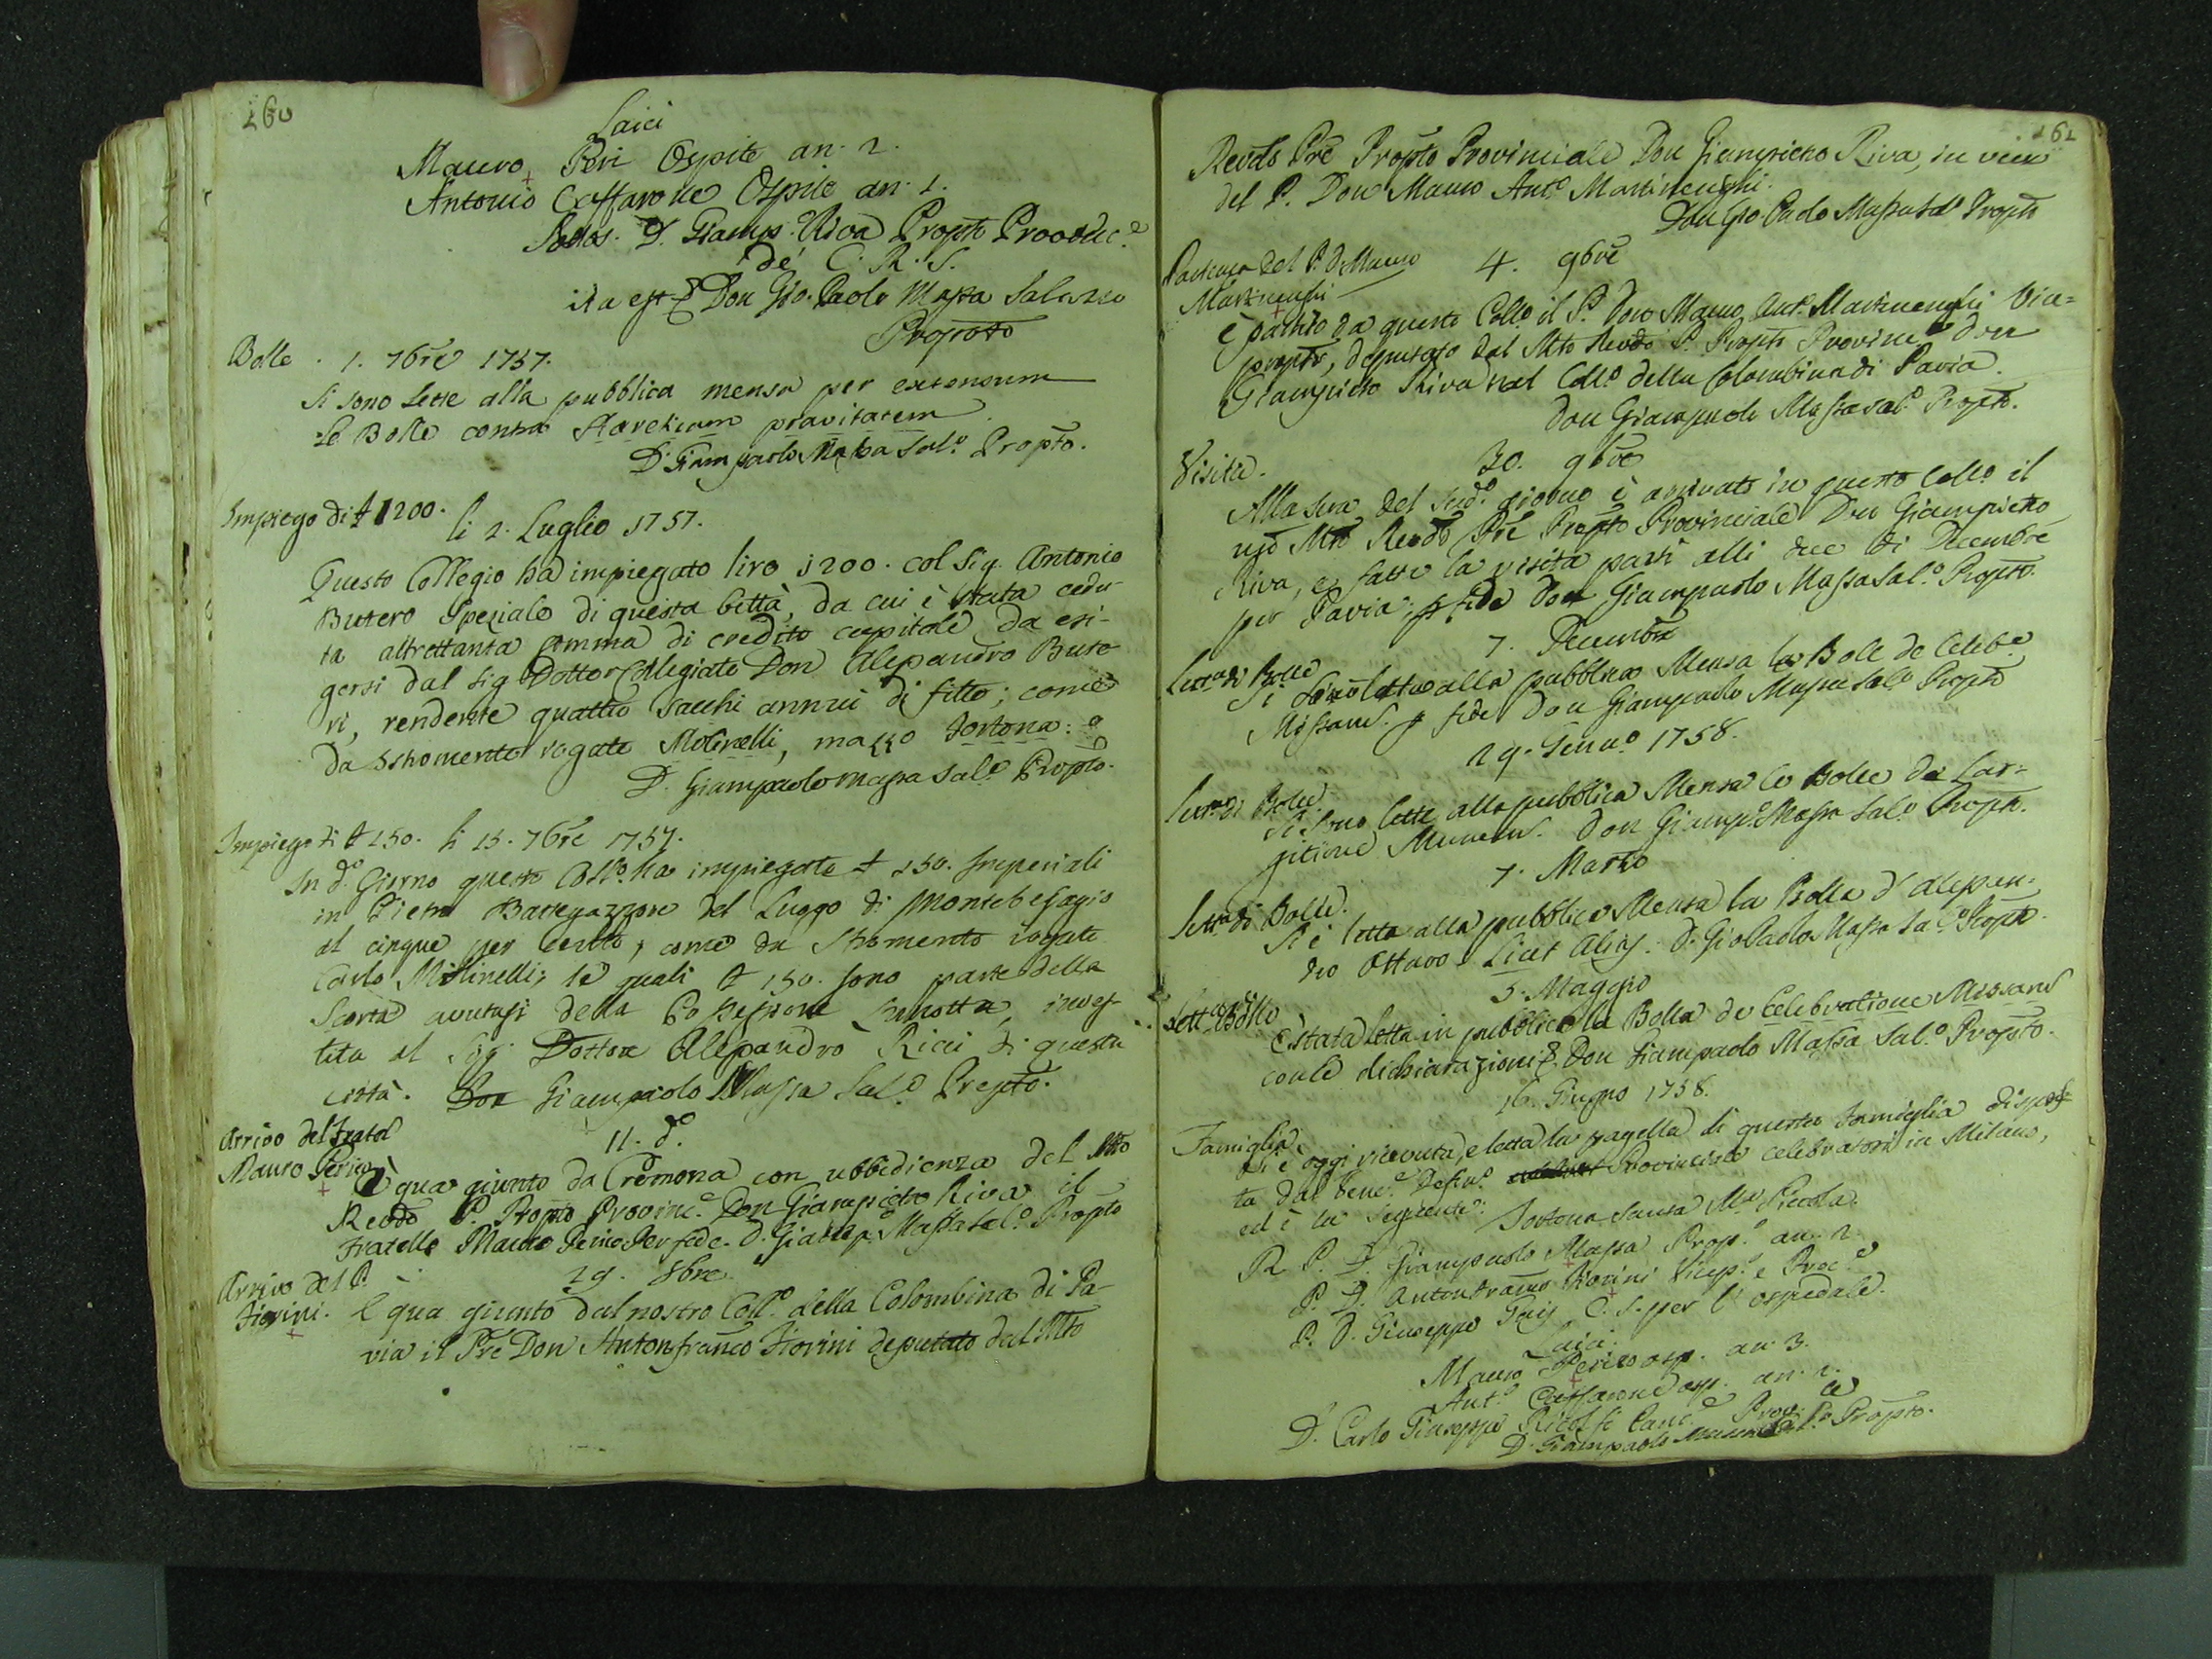 260
Laici
Mauro Peri Ospite an. 2.
Antonio Caffarone Ospite an. 1.
D. Giamp. Riva Propto
de' C. R. S.
ita est Don Gio. Paolo Massa Salazzo
Proposto
Bolle. 1. 7bre 1757.
Si sono Lette alla pubblica mensa per extensum
le Bolle contra Hareticam pravitatem
D. Giampaolo Massa Sal.o Propto.
Impiego di £ 1200.
li 2. Luglio 1757.
Questo Collegio ha impiegato lire 1200. col Sig. Antonio
Butero Speziale di questa Città, da cui è stata cedu-
ta altrettanta somma di credito capitale da esi-
gersi dal Sig. Dottor Collegiato Don Alessandro Bute-
ri, rendente quattro sacchi annui di fitto; come
da Istromento rogato Molinelli, mazzo Tortona:
D. Giampaolo Massa Sal.o Propto.
Impiego di £ 150. li 15. 7bre 1757.
In d.o Giorno questo Coll.o ha impiegate £ 150. Imperiali
in Pietro Battegazzore del Luogo di Montebesagio
al cinque per cento, come da Stromento rogato
Carlo Molinelli; le quali £ 150. sono parte della
Scorta avutasi della Possessione, inves-
tita al Sig. Dottore Alessandro Ricci di questa
città. Don Giampaolo Massa Sal.o Prepto.
Arrivo del Fratel
Mauro Perico
11. d.o
È qua giunto da Cremona con ubbidienza del Mto
Revdo P. Propto Provinc.e Don Giampietro Riva il
Fratello Mauro Perico Per fede. D. Giamp.o Massa Sal.o Propto
Arrivo del P.
Fiorini.
29. 8bre
È qua giunto dal nostro Coll.o della Colombina di Pa-
via il Pre Don Antonfranco Fiorini deputato dal Mto
261
Revdo Pre Propto Provinciale Don Giampietro Riva, in vece
del P. Don Mauro Ant.o Martinenghi.
Don Gio Paolo Massa Sal.o Propto
Partenza del P. D. Mauro
Martinenghi
4. 9bre
È partito da questo Coll.o il P. Don Mauro Ant.o Martinenghi Vice-
propto, deputato dal Mto Revdo P. Propto Provinc.e Don
Giampietro Riva nel Coll.o della Colombina di Pavia.
Don Giampaolo Massa Sal.o Propto.
Visita.
30. 9bre
Alla sera del sud.o giorno è arrivato in questo Coll.o il
Mto Revdo Pre Propto Provinciale Don Giampietro
Riva, e fatta la visita partì alli due di Decembre
per Pavia; p fede Don Giampaolo Massa Sal.o Propto.
Lett.a di Bolle
7. Decembre
Si sono lette alla pubblica Mensa le Bolle de Celeb.e
Missarum. p fede Don Giampaolo Massa Sal.o Propto
29. Genn.o 1758.
Lett.a di Bolle.
Si sono lette alla pubblica Mensa le Bolle de Lar-
gitione Munerum. Don Giamp.o Massa Sal.o Propto.
7. Marzo
Lett.a di Bolle.
Si è letta alla pubblica Mensa la Bolla d' Alessan-
dro Ottavo Licet Alias. D. Gio Paolo Massa Sal.o Propto.
5. Maggio
Lett.a di Bolle
È stata letta in pubblico la Bolla de Celebratione Missarum
con le dichiarazioni Don Giampaolo Massa Sal.o Proposto.
16. Giugno 1758.
Famiglia.
Si è oggi ricevuta, e letta la pagella di questa Famiglia dispos-
ta dal Vene.o Defin.o Provinciale celebratosi in Milano,
ed è la seguente: Tortona Santa M.a Piccola.
R. P. D. Giampaolo Massa Prop.o an. 2.
P. D. Antonfranco Fiorini Vicep.o e Proc.e
P. D. Giuseppe C. S. per l' ospedale.
Laici.
Mauro Perico osp. an. 3.
Ant.o Caffarone osp. an. 2.
D. Carlo Giuseppe Ridolfi Canc.e Prov.le
D. Giampaolo Massa Sal.o Propto.